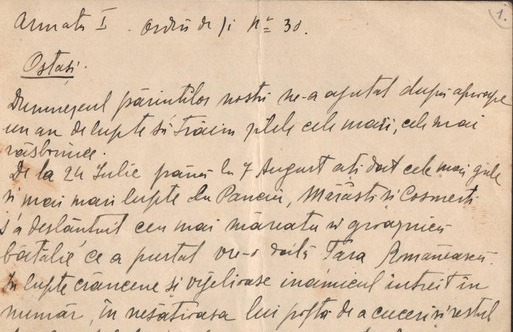 1.
Armata I. Ordin de zi Nº 30.
Ostași.
Dumnezeul părinților noștri ne-a ajutat după aproape
un an de lupte să trăim zilele cele mari, cele mai
răsboinice.
De la 24 Iulie până la 7 August ați dat cele mai grele
și mai mari lupte la Panciu, Mărăști și Cosmești
S'a deslănțuit cea mai măreață și groaznică
bătălie ce a purtat vre-o dată Țara Românească.
În lupte crâncene și vijelioase inamicul întreit în
număr, în nesățioasa lui poftă de a cuceri și restul